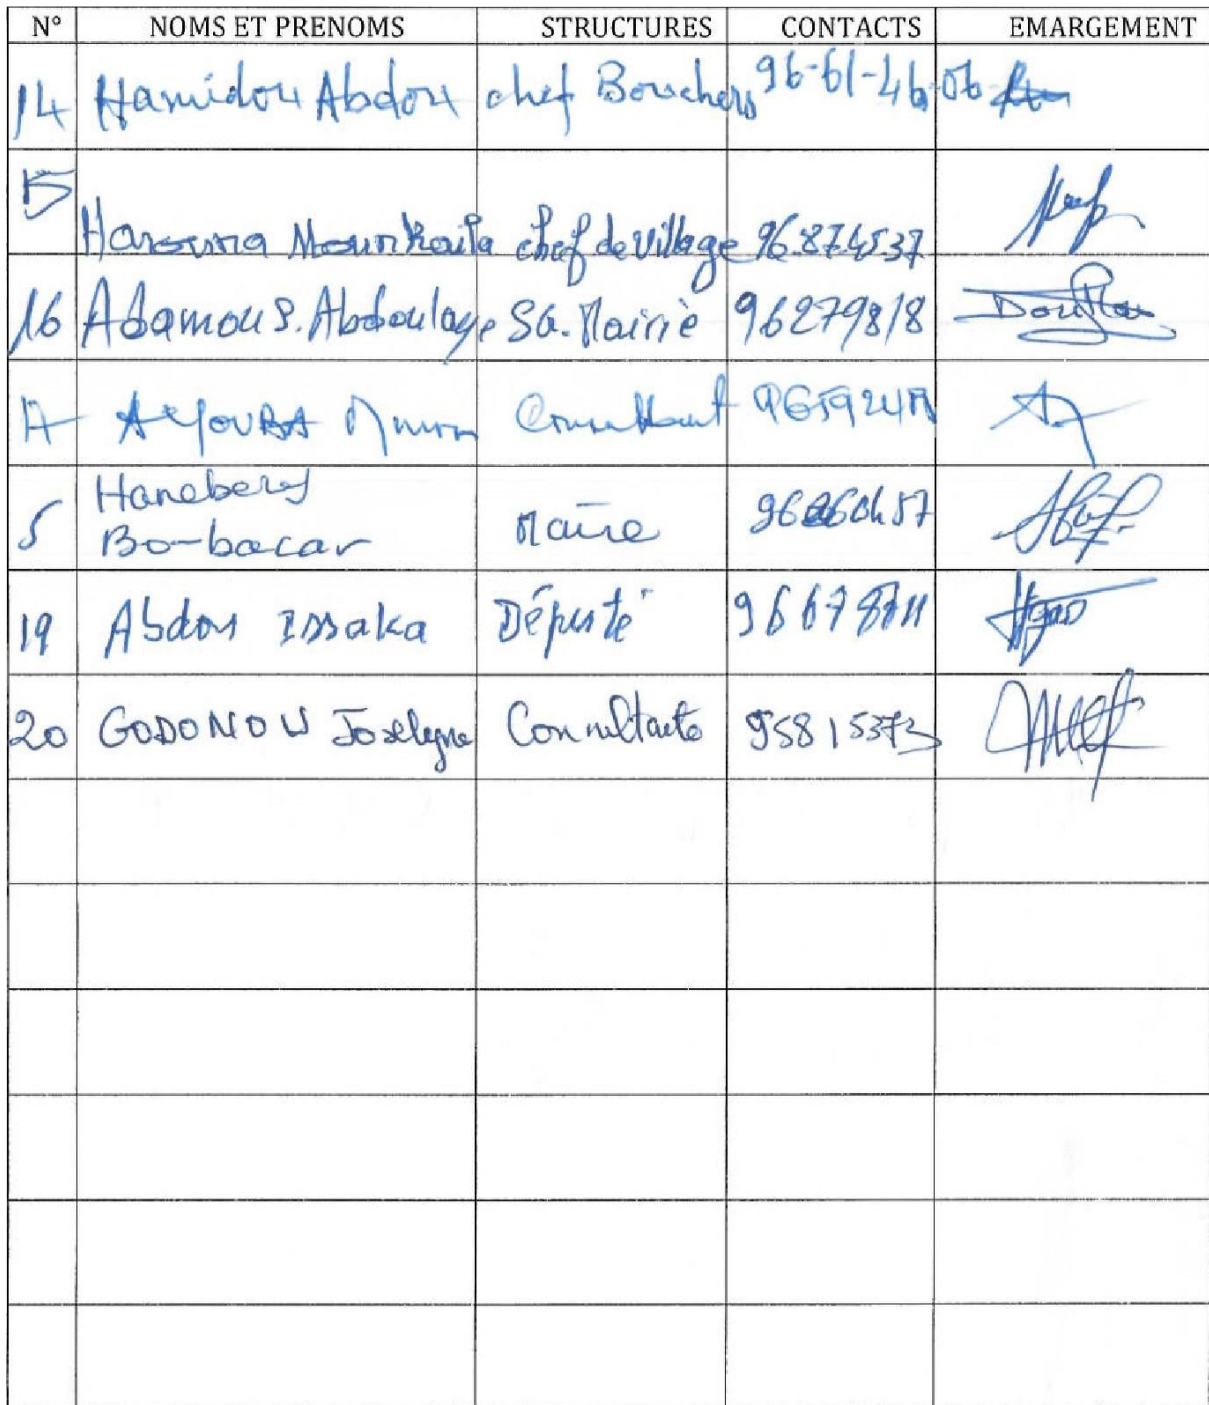 N° NOMS ET PRENOMS STRUCTURES CONTACTS EMARGEMENT
14 Hamidou Abdou chef Bouchers 96-61-46-06
15 Harouna Mounkaila chef de village 96.87.45.37
16 Adamou S. Abdoulaye SG. Mairie 96279818
17 AYOUBA Consultant
5 Bo-bacar Maire
19 Abdou Issaka Député 96678711
20 GODONOU Joselyne Consultante 95815373